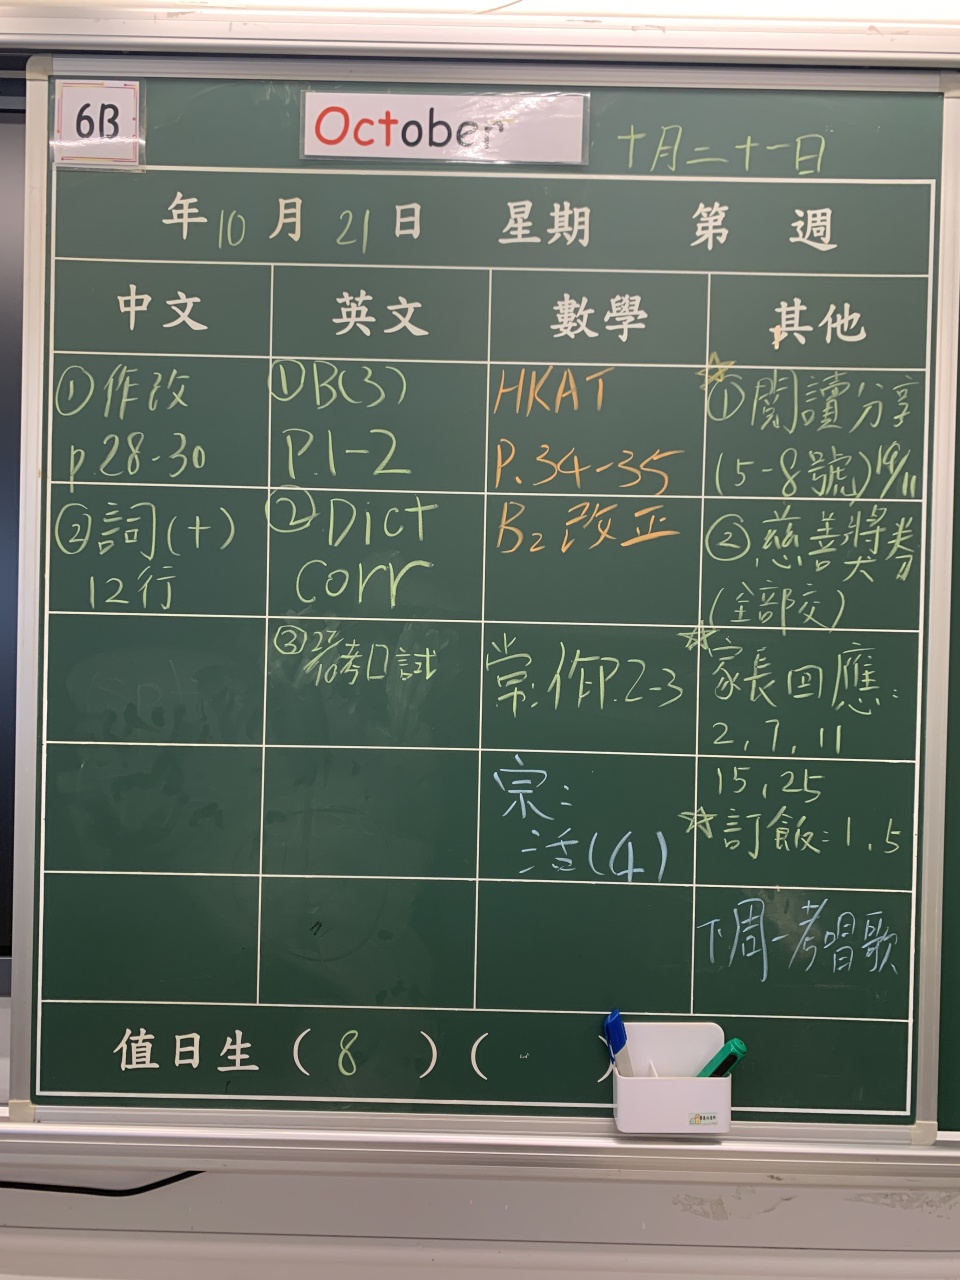 6B
October
十月二十一日
年10月21日 星期 第 週
中文 英文 數學 其他
①作改
p.28-30
②詞(十)
12行
①B(3)
P.1-2
②Dict
Corr
③27/10考口試
HKAT
P.34-35
B2改正
常:作P.2-3
宗:
活(4)
①閱讀分享
(5-8號)19/11
②慈善獎券
(全部交)
家長回應:
2,7,11
15,25
訂飯:1,5
下周一考唱歌
值日生(8)( )